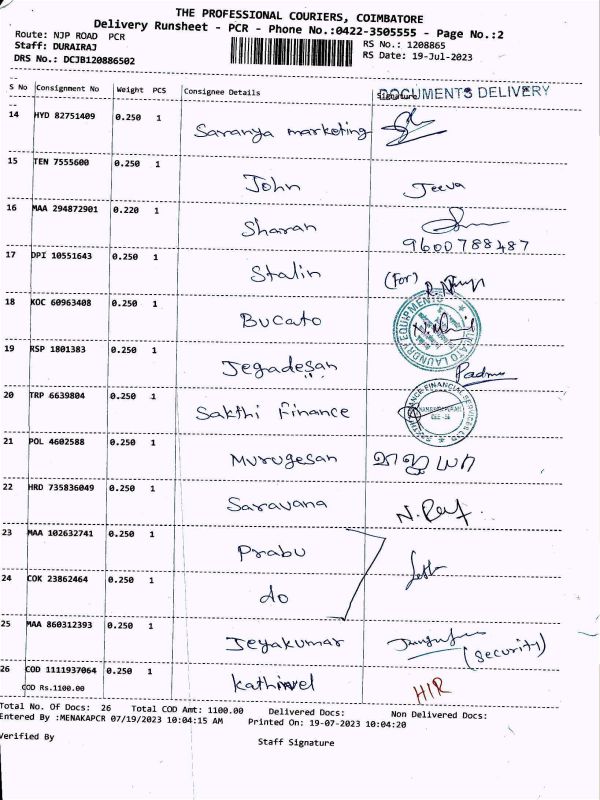 THE PROFESSIONAL COURIERS, COIMBATORE
Delivery Runsheet - PCR - Phone No.:0422-3505555 - Page No.:2
Route: NJP ROAD PCR
RS No.: 1208865
Staff: DURAIRAJ
RS Date: 19-Jul-2023
DRS No.: DCJB120886502
DOCUMENTS DELIVERY
S No Consignment No Weight PCS Consignee Details Signature
14 HYD 82751409 0.250 1 Saranya marketing
15 TEN 7555600 0.250 1 John Jeeva
16 MAA 294872901 0.220 1 Sharan
9600788487
17 DPI 10551643 0.250 1 Stalin (For)
18 KOC 60963408 0.250 1 Bucato
19 RSP 1801383 0.250 1 Jegadesan Padma
20 TRP 6639804 0.250 1 Sakthi Finance
21 POL 4602588 0.250 1 Murugesan
22 HRD 735836049 0.250 1 Saravana
23 MAA 102632741 0.250 1 Prabu
24 COK 23862464 0.250 1 do
25 MAA 860312393 0.250 1 Jeyakumar (security)
26 COD 1111937064 0.250 1 Kathirvel HIR
COD Rs.1100.00
Total No. Of Docs: 26 Total COD Amt: 1100.00 Delivered Docs: Non Delivered Docs:
Entered By :MENAKAPCR 07/19/2023 10:04:15 AM Printed On: 19-07-2023 10:04:20
Verified By
Staff Signature